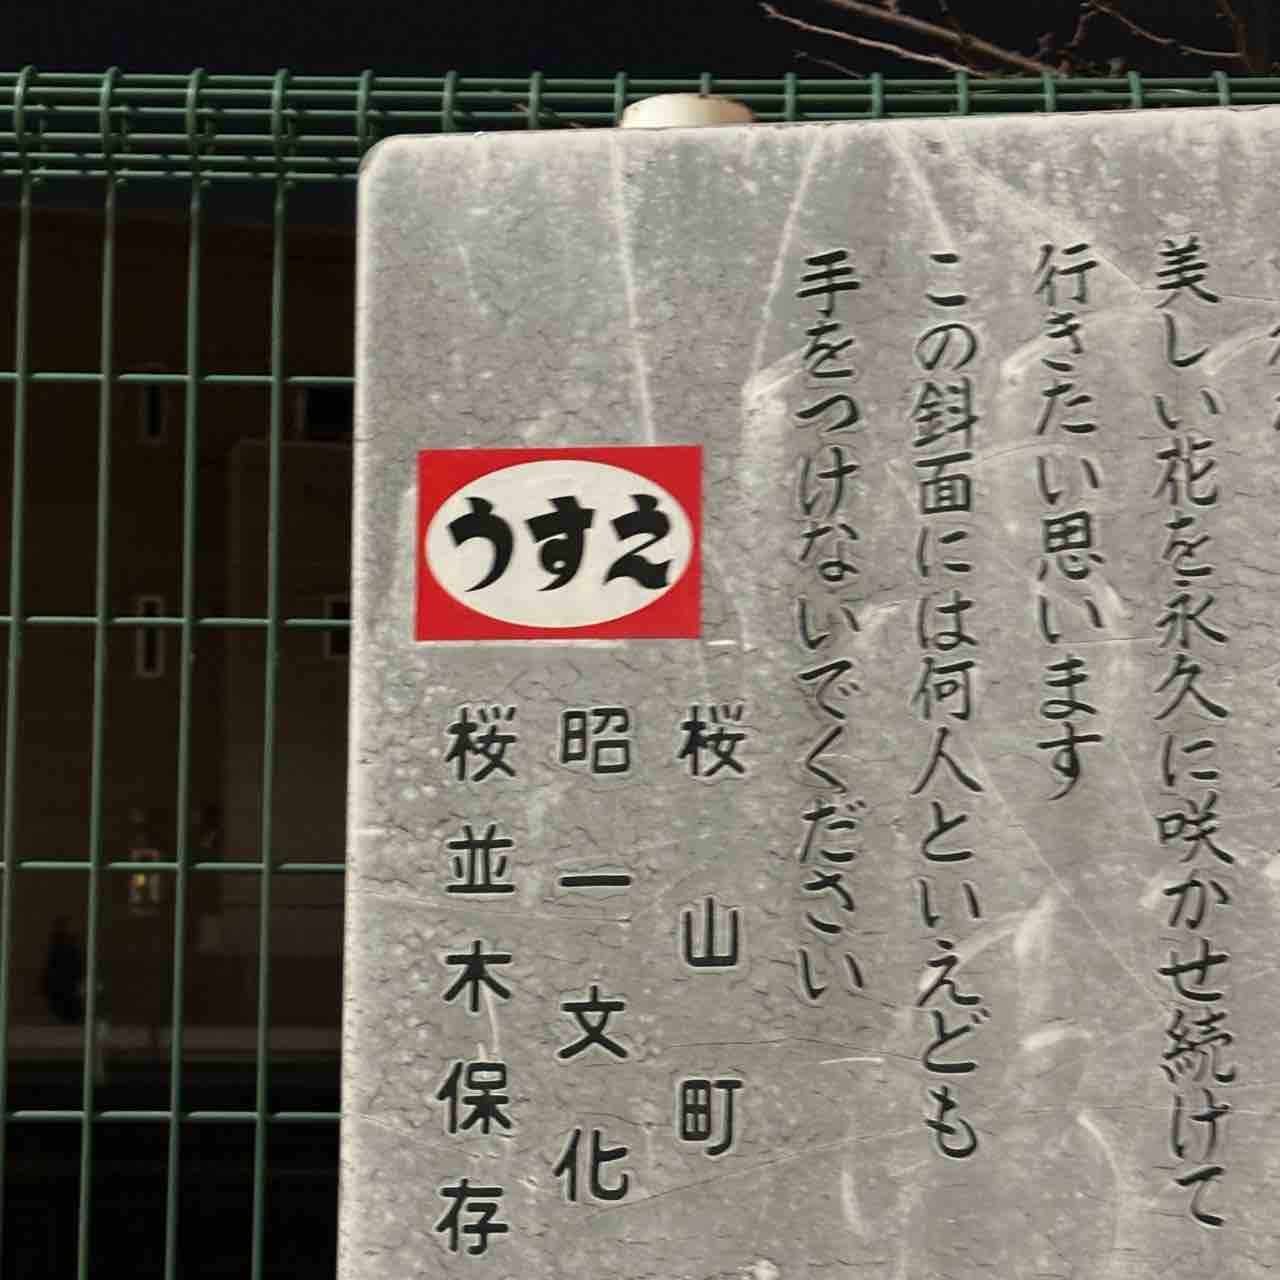 美しい花を永久に咲かせ続けて
行きたい思います
この斜面には何人といえども
手をつけないでください
桜山町
昭一文化
桜並木保存
うすえ